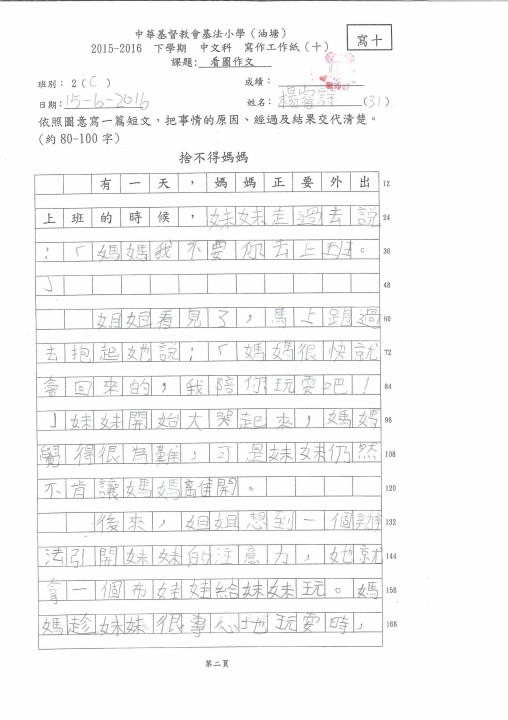 中華基督教會基法小學（油塘）
2015-2016 下學期 中文科 寫作工作紙（十）
寫十
課題: 看圖作文
班別： 2（C） 成績：
日期：15-6-2016 姓名：楊睿詩（31）
依照圖意寫一篇短文，把事情的原因、經過及結果交代清楚。
(約 80-100 字)
捨不得媽媽
有一天，媽媽正要外出 12
上班的時候，妹妹走過去說 24
：「媽媽我不要你去上班。 36
」 48
姐姐看見了，馬上跑過 60
去抱起她說：「媽媽很快就 72
會回來的，我陪你玩耍吧！ 84
」妹妹開始大哭起來，媽媽 96
覺得很為難，可是妹妹仍然 108
不肯讓媽媽離開。 120
後來，姐姐想到一個辦 132
法引開妹妹的注意力，她就 144
拿一個布娃娃給妹妹玩。媽 156
媽趁妹妹很專心地玩耍時， 168
第二頁